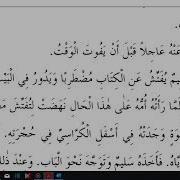 عَنْهُ عَاجِلاً قَبْلَ أَنْ يَفُوتَ الْوَقْتُ.
يُفَتِّشُ عَنِ الْكِتَابِ مُضْطَرِبًا وَيَدُورُ فِي الْبَيْـ
رَأَتْهُ أُمُّهُ عَلَى هٰذَا الْحَالِ نَهَضَتْ لِتُفَتِّشَ
وَجَدَتْهُ فِي أَسْفَلِ الْكُرَّاسِيِّ فِي حُجْرَتِهِ.
فَأَخَذَهُ سَلِيمٌ وَتَوَجَّهَ نَحْوَ الْبَابِ. وَعِنْدَ ذٰلِكَ